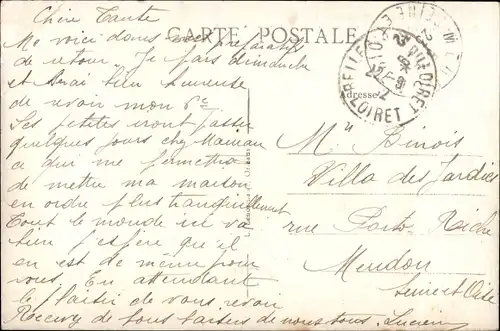 Chère Tante
CARTE POSTALE
Me voici dans mes préparatifs
de retour. Je pars dimanche
et serai bien heureuse
de revoir mon Pe
Les petites iront passer
quelques jours chez Maman
ce qui me permettra
de mettre ma maison
en ordre plus tranquillement
Tout le monde ici va
bien j'espère que il
en est de même pour
vous. En attendant
le plaisir de vous revoir
Recevez de bons baisers de nous tous. Lucien
Adresse
M. Binois
Villa des Jardies
rue Porto Riche
Meudon
Seine et Oise
LOIRET